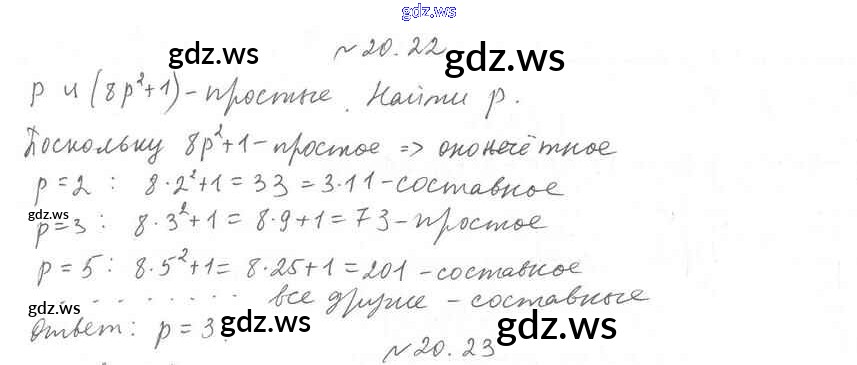 gdz.ws
№ 20.22
gdz.ws gdz.ws
p и (8p²+1) - простые. Найти p.
Поскольку 8p²+1 - простое => оно нечётное
p=2 : 8·2²+1 = 33 = 3·11 - составное
gdz.ws
p=3 : 8·3²+1 = 8·9+1 = 73 - простое
p=5 : 8·5²+1 = 8·25+1 = 201 - составное
. . . . . . . . . все другие - составные
gdz.ws gdz.ws gdz.ws
Ответ: p = 3.
№ 20.23